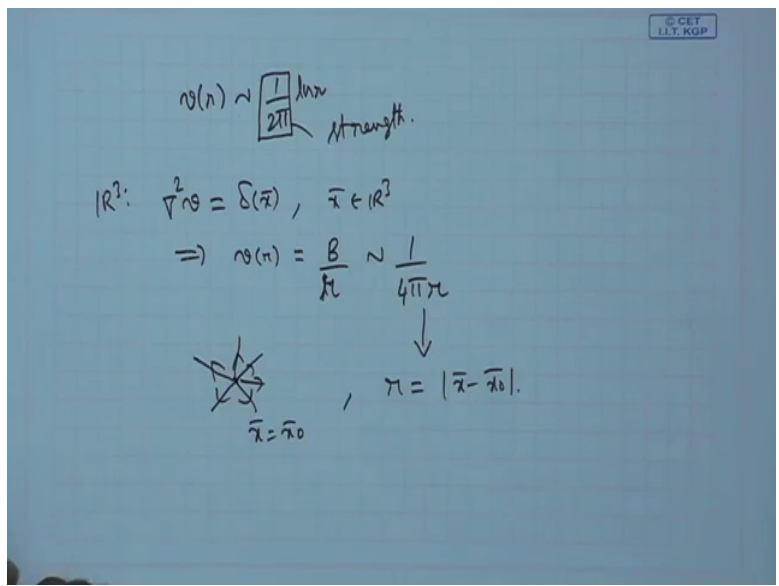 © CET
I.I.T. KGP
v(r) ~ 1/2π lnr
strength.
IR³: ∇²v = δ(x̄), x̄ ∈ IR³
=> v(r) = B/r ~ 1/4πr
, r = |x̄ - x̄0|.
x̄ = x̄0